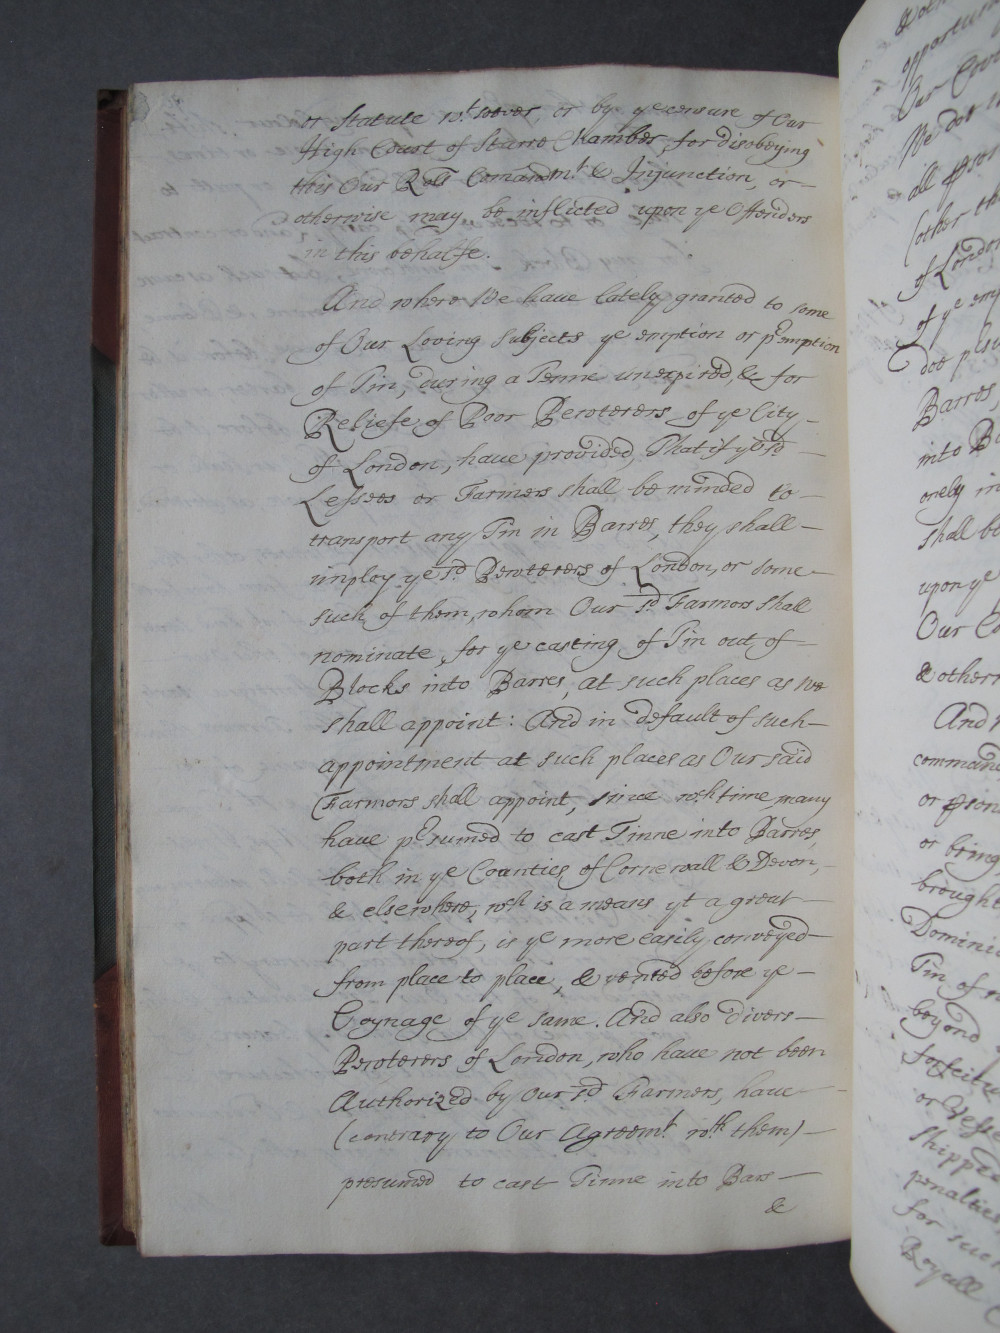 or Statute wt. soever, or by ye censure of Our
High Court of Starre Chamber, for disobeying
this Our Roll Comandmt. & Injunction, or
otherwise may be inflicted upon ye Offenders
in this behalfe.
And where We have lately granted to some
of Our Loving Subjects ye emption or p'emption
of Tin, during a Terme unexpired, & for
Reliefe of Poor Pewterers of ye City
of London, have provided, That if ye sd.
Lessees or Farmers shall be minded to
transport any Tin in Barres, they shall
imploy ye sd. Pewterers of London, or some
such of them, whom Our sd. Farmors shall
nominate, for ye casting of Tin out of
Blocks into Barres, at such places as We
shall appoint: And in default of such
appointment at such places as Our said
Farmors shall appoint, since wch. time many
have p'sumed to cast Tinne into Barres,
both in ye Counties of Cornewall & Devon,
& elsewhere, wch. is a means yt a great
part thereof, is ye more easily conveyed
from place to place, & vented before ye
Coynage of ye same. And also divers
Pewterers of London, who have not been
Authorized by Our sd. Farmers, have
(contrary to Our Agreemt. wth. them)
presumed to cast Tinne into Bars
&
opportun
Our Cov
We doe
all pson
(other th
of London
of ye emp
doe p'su
Barres,
into B
onely in
shall be
upon ye
Our Co
& other
And
command
or pson
or bring
brought
Domini
Tin of
beyond
forfeitu
or Vesse
Shippe
penalties
for such
Royall C